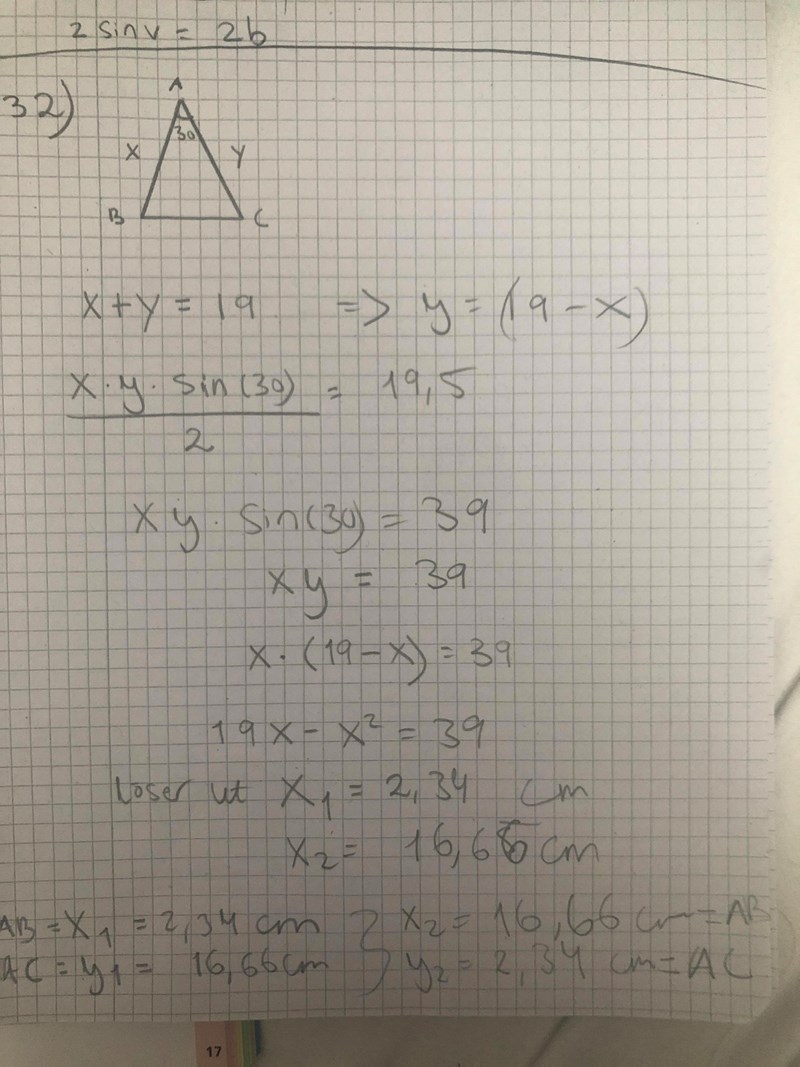 2 sinv = 2b
32)
A
30
x y
B C
x + y = 19 => y = (19 - x)
x · y · sin(30) = 19,5
2
xy · sin(30) = 39
xy = 39
x · (19 - x) = 39
19x - x² = 39
loser ut x₁ = 2,34 cm
x₂ = 16,66 cm
AB = x₁ = 2,34 cm } x₂ = 16,66 cm = AB
AC = y₁ = 16,66 cm } y₂ = 2,34 cm = AC
17